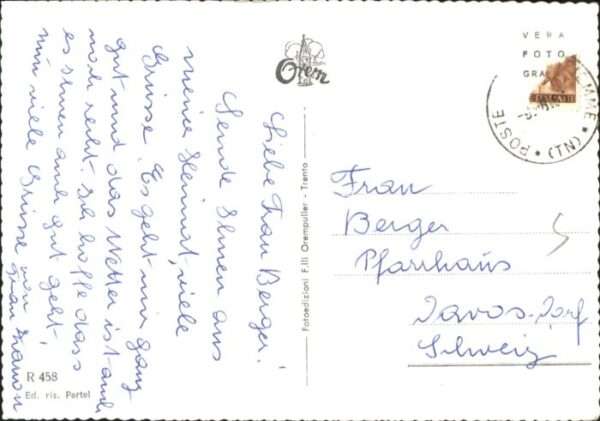 Liebe Frau Berger!
Sende Ihnen aus
meine Heimat, viele
Grüsse. Es geht mir ganz
gut und das Wetter ist auch
noch recht. Ich hoffe dass
es Ihnen auch gut geht,
nun viele Grüsse von
Frau
R 458
Ed. ris. Pertel
Orem
Fotoedizioni F.lli Orempuller - Trento
VERA
FOTO
POSTE * (TN) *
Frau
Berger
Pfarrhaus
Davos-Dorf
Schweiz